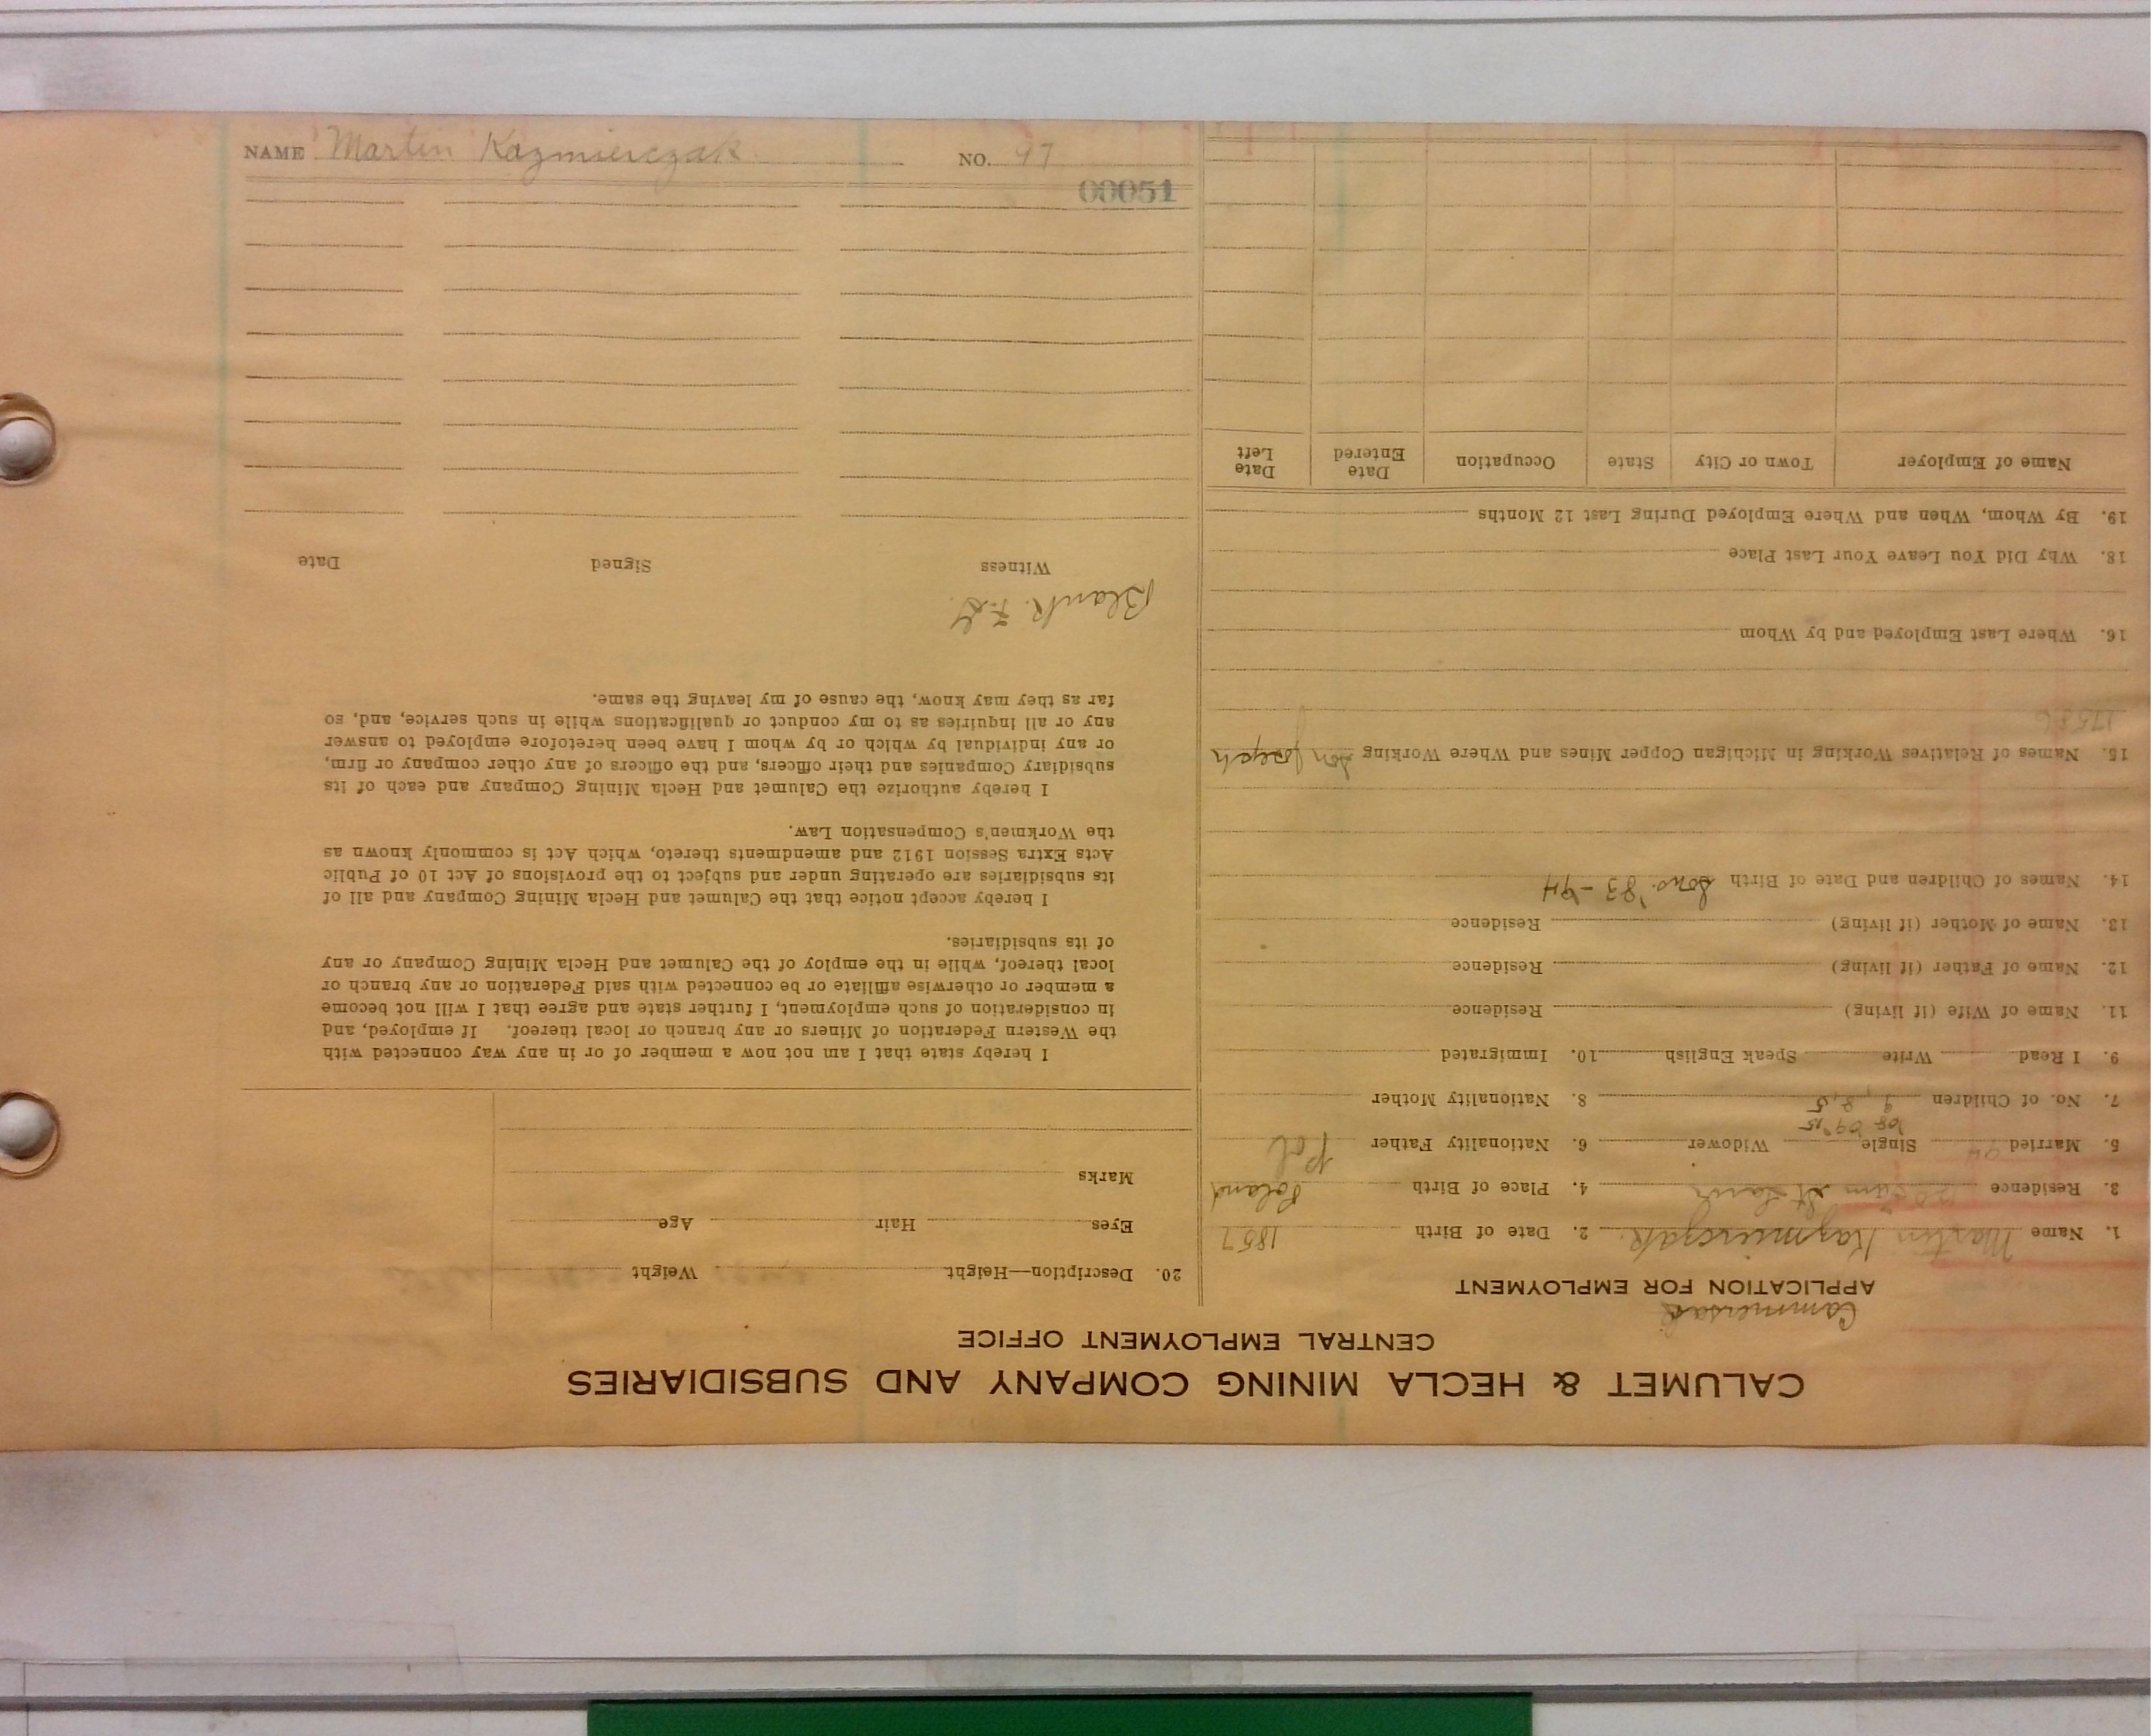 NAME Martin Kazmierczak NO. 97
00051
CALUMET & HECLA MINING COMPANY AND SUBSIDIARIES
CENTRAL EMPLOYMENT OFFICE
APPLICATION FOR EMPLOYMENT
1. Name Martin Kazmierczak. 2. Date of Birth 1857
3. Residence St 4. Place of Birth Poland
5. Married Single Widower 6. Nationality Father Pol
'08 '09 '15
7. No. of Children 9, 8, 5 8. Nationality Mother
9. I Read Write Speak English 10. Immigrated
11. Name of Wife (if living) Residence
12. Name of Father (if living) Residence
13. Name of Mother (if living) Residence
14. Names of Children and Date of Birth Sons. '83 - '94
15. Names of Relatives Working in Michigan Copper Mines and Where Working Son Joseph
16. Where Last Employed and by Whom
18. Why Did You Leave Your Last Place
19. By Whom, When and Where Employed During Last 12 Months
Name of Employer Town or City State Occupation Date Entered Date Left
20. Description—Height Weight
Eyes Hair Age
Marks
I hereby state that I am not now a member of or in any way connected with
the Western Federation of Miners or any branch or local thereof. If employed, and
in consideration of such employment, I further state and agree that I will not become
a member or otherwise affiliate or be connected with said Federation or any branch or
local thereof, while in the employ of the Calumet and Hecla Mining Company or any
of its subsidiaries.
I hereby accept notice that the Calumet and Hecla Mining Company and all of
its subsidiaries are operating under and subject to the provisions of Act 10 of Public
Acts Extra Session 1912 and amendments thereto, which Act is commonly known as
the Workmen's Compensation Law.
I hereby authorize the Calumet and Hecla Mining Company and each of its
subsidiary Companies and their officers, and the officers of any other company or firm,
or any individual by which or by whom I have been heretofore employed to answer
any or all inquiries as to my conduct or qualifications while in such service, and, so
far as they may know, the cause of my leaving the same.
Blank
Witness Signed Date